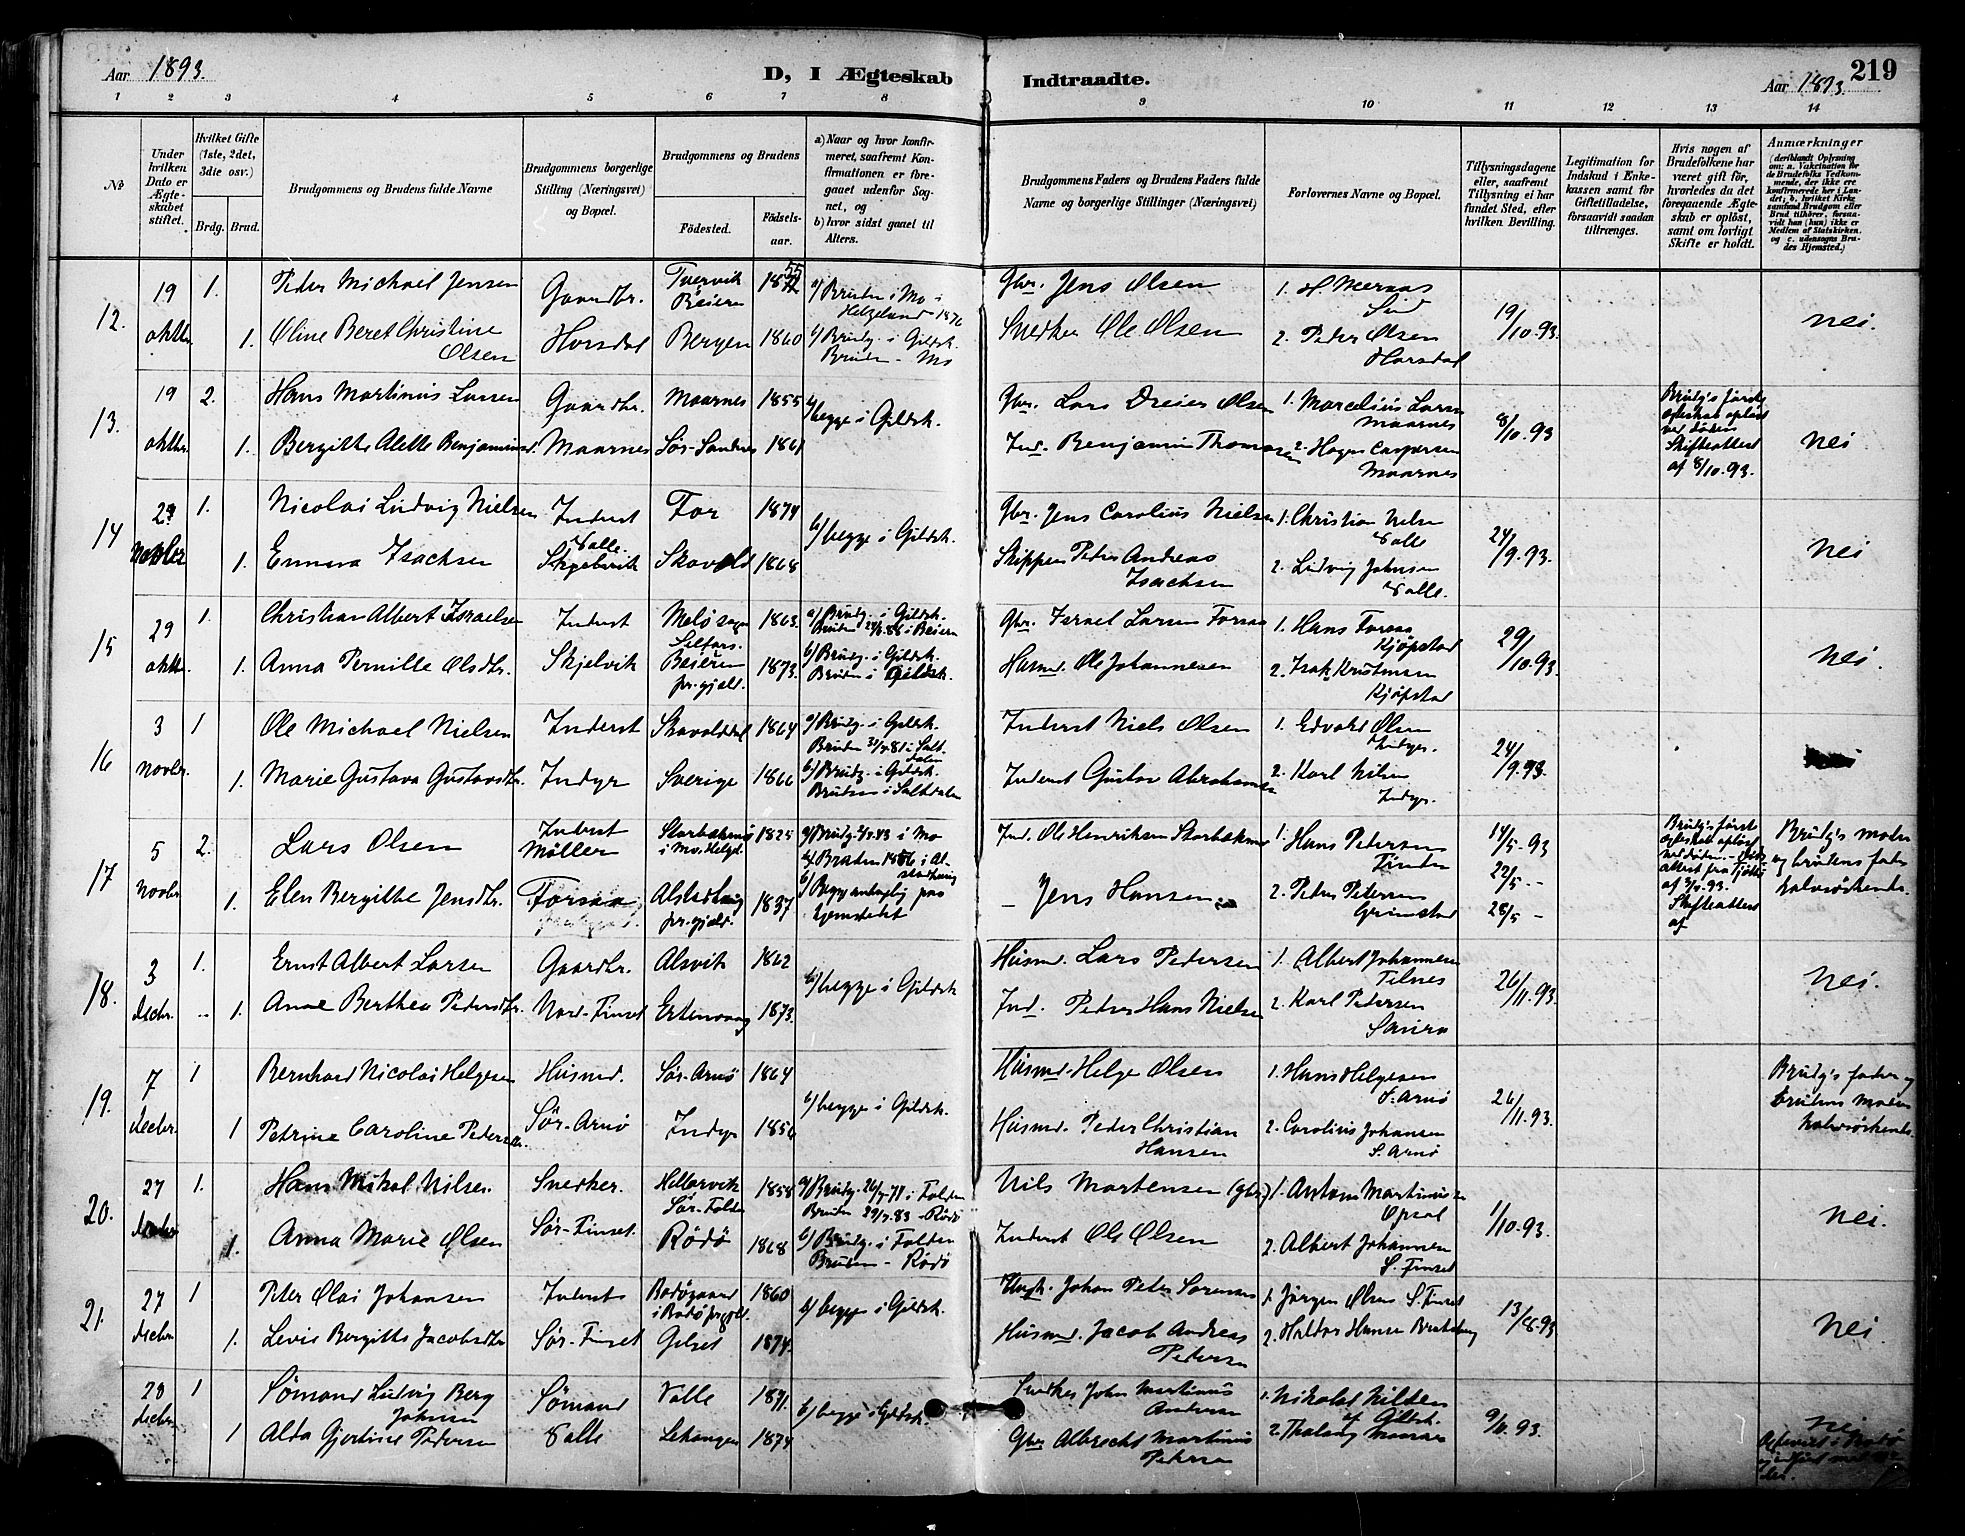 Aar 1893.
D, I Ægteskab
Indtraadte.
219
Aar 1893.
1 2 3 4 5 6 7 8 9 10 11 12 13 14
No
Under hvilken Dato er Ægteskabet stiftet.
Hvilket Gifte (1ste, 2det, 3die osv.)
Brdg. Brud.
Brudgommens og Brudens fulde Navne
Brudgommens borgerlige Stilling (Næringsvei) og Bopæl.
Brudgommens og Brudens
Fødested.
Fødselsaar.
a) Naar og hvor konfirmeret, saafremt Konfirmationen er foregaaet udenfor Sognet, og
b) hvor sidst gaaet til Alters.
Brudgommens Faders og Brudens Faders fulde Navne og borgerlige Stillinger (Næringsvei)
Forlovernes Navne og Bopæl.
Tillysningsdagene eller, saafremt Tillysning ei har fundet Sted, efter hvilken Bevilling.
Legitimation for Indskud i Enkekassen samt for Giftetilladelse, forsaavidt saadan tiltrænges.
Hvis nogen af Brudefolkene har været gift før, hvorledes da det foregaaende Ægteskab er opløst, samt om lovligt Skifte er holdt.
Anmærkninger
(deriblandt Oplysning om: a. Vakcination for de Brudefolks Vedkommende, der ikke ere konfirmerede her i Landet; b. hvilket Kirkesamfund Brudgom eller Brud tilhører, forsaavidt han (hun) ikke er Medlem af Statskirken, og c. udensogns Brudes Hjemsted.)
12. 19 oktbr. 1. Peder Michael Jensen Gaardbr. Tvervik Beiern 1855
a) Bruden i Mo i Helgeland 1876
Gbr. Jens Olsen 1. H. Mernas
19/10.93. nei.
1. Oline Beret Christine Olsen Horsdal Bergen 1860
b) Brudg. i Gildsk. Bruden - Mo
Snedker Ole Olsen 2. Peder Olsen Horsdal
13. 19 oktbr. 2. Hans Martinus Larsen Gaardbr. Maarnes 1855 b/ begge i Gildsk.
Gbr. Lars Dreier Olsen 1. Marcelius Larsen Maarnes 8/10.93
Brudg's første egteskab opløst ved døden Skifteattest af 8/10.93. nei
1. Bergitte Alette Benjaminsd. Maarnes Sør-Sandnes 1861
Ind. Benjamin Thomassen 2. Hagen Caspersen Maarnes
14 29 Novbr 1. Nicolai Ludvig Nielsen Inderst Valle For 1874 b/ begge i Gildsk.
Gbr. Jens Carolius Nielsen 1. Christian Nilsen Valle 24/9.93. nei
1. Emma Isachsen Skjelvik Skavold 1868
Skipper Peder Andreas Isachsen 2. Ludvig Johnsen Valle.
15 29 oktbr. 1. Christian Albert Israelsen Inderst Melø sogn 1863.
a/ Brudg. i Gildsk. Bruden i Beiern
Gbr. Israel Larsen Forsaa 1. Hans Forsaa Kjøpstad 29/10.93. nei.
1. Anna Pernille Olsdtr. Skjelvik Beiern pr.gjeld. 1873.
b) Brudg. i Gildsk. Bruden i Gildsk.
Husmd. Ole Johannesen 2. Isak Kristensen Kjøpstad
16 3 novbr. 1 Ole Michael Nielsen Inderst Skavolddal 1864
a) Brudg. i Gildsk. Bruden i Saltdalen
Inderst Niels Olsen 1. Edvard Olsen Indyr. 24/9.93.
1. Marie Gustava Gustavsdtr. Indyr Sverige 1866
b) Brudg. i Gildsk. Bruden i Saltdalen
Inderst Gustav Abrahamsen 2. Karl Nilsen Indyr.
17 5 novbr 2. Lars Olsen Inderst Møller Storbæknes i Mo. Helgel. 1825
a) Brudg. i Mo Bruden 1856 i Alstadhaug
Ind. Ole Henriksen Storbæknes 1. Hans Petersen 14/5-93 22/5 - - 28/5 -
Brudg's først egteskab opløst ved døden. Skifteattest af
Brudg's moder og brudens fader halvsøskende.
1. Elen Bergitte Jensdtr. Forsaa Alstadhaug pr.gjeld. 1837
b) Begge antagelig paa hjemstedet
- Jens Hansen 2. Peder Petersen Grimstad
18. 3 decbr. 1. Ernst Albert Larsen Gaardbr. Alsvik 1862 b/ begge i Gildsk
Husmd. Lars Pedersen 1. Albert Johannesen Telnes 26/11.93. nei.
1. Anne Berthea Pedersdtr. Nord-Finset Ertenvaag 1873.
Ind. Peder Hans Nielsen 2. Karl Petersen
19. 7 decbr. 1 Bernhard Nicolai Helgesen Husmd. Sør-Arnø 1864 b/ begge i Gildsk.
Husmd. Helge Olsen 1. Hans Helgesen S. Arnø 26/11.93.
Brudg's fader og brudens moder halvsøskende.
1 Petrine Caroline Pedersdtr. Sør-Arnø Indyr 1856
Husmd. Peder Christian Hansen 2. Carolius Johansen S. Arnø
20. 27 decbr 1. Hans Mikal Nilsen Snedker. Hellarvik Sør-Folden 1858
a) Brudg. 26/7.74 i Folden Bruden 29/7.83 - Rødø
Nils Mortensen (gbr) 1. Anton Martinussen Opsal 1/10.93. nei.
1. Anna Marie Olsen Sør-Finset. Rødø 1868
b) Brudg. i Folden Bruden - Rødø
Inderst Ole Olsen 2. Albert Johannesen S. Finset
21. 27 decbr 1 Peter Olai Johansen Inderst Bodøgaard i Bodø prgjld. 1860 b/ begge i Gildsk.
Johan Peter Sørensen 1. Jørgen Olsen S. Finset 13/8.93 nei.
1. Levie Bergitte Jacobsdtr Sør-Finset Gilset 1874.
Husmd. Jacob Andreas Pedersen 2. Haldor Hansen
28 decbr 1 Sømand Ludvig Berg Johnsen Sømand Valle 1871. b/ begge i Gildsk.
Snedker John Martinus Andersen 1. Nikolai Nilsen af Gildsk. 9/11.93. nei
1 Alda Gjertine Pedersen Valle Lekangen 1874
Gbr Albrecht Martinus Petersen 2. Maarnes